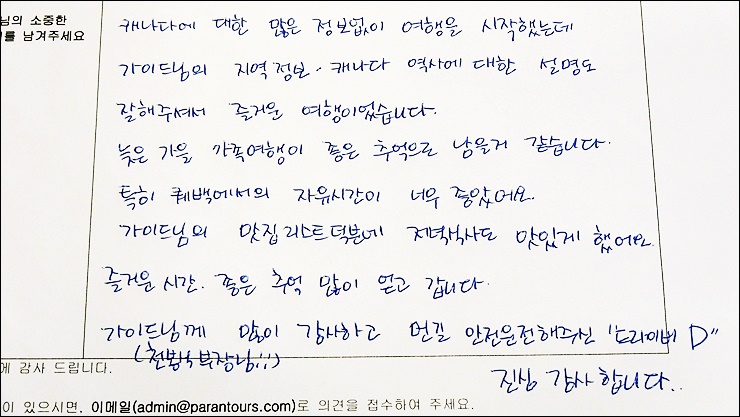 님의 소중한
를 남겨주세요
캐나다에 대한 많은 정보없이 여행을 시작했는데
가이드님의 지역정보. 캐나다 역사에 대한 설명도
잘해주셔서 즐거운 여행이었습니다.
늦은 가을 가족여행이 좋은 추억으로 남을거 같습니다.
특히 퀘백에서의 자유시간이 너무 좋았어요.
가이드님의 맛집리스트덕분에 저녁식사도 맛있게 했어요.
즐거운 시간. 좋은 추억 많이 얻고 갑니다.
가이드님께 많이 감사하고 먼길 안전운전해주신 "드라이버 D"
부장님!!)
진심 감사합니다..
에 감사 드립니다.
이 있으시면, 이메일(admin@parantours.com)로 의견을 접수하여 주세요.